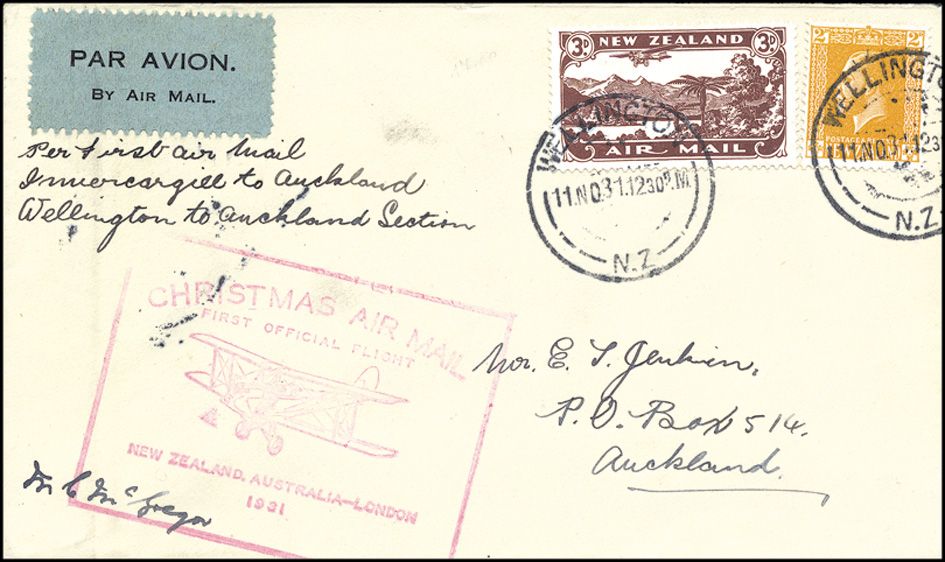 PAR AVION.
BY AIR MAIL.
3D NEW ZEALAND 3D
AIR MAIL
2D 2D
POSTAGE
WELLINGTON
11.NO.31.1230P.M
N.Z.
WELLINGTO
11.NO.31.1230
N.Z
Per First air Mail
Invercargill to Auckland
Wellington to Auckland Section
CHRISTMAS AIR MAIL
FIRST OFFICIAL FLIGHT
NEW ZEALAND, AUSTRALIA-LONDON
1931
Mr. E. S. Jenkin,
P.O. Box 514.
Auckland.
M C McGregor